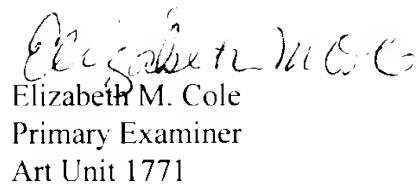 Elizabeth M. Cole
Elizabeth M. Cole
Primary Examiner
Art Unit 1771